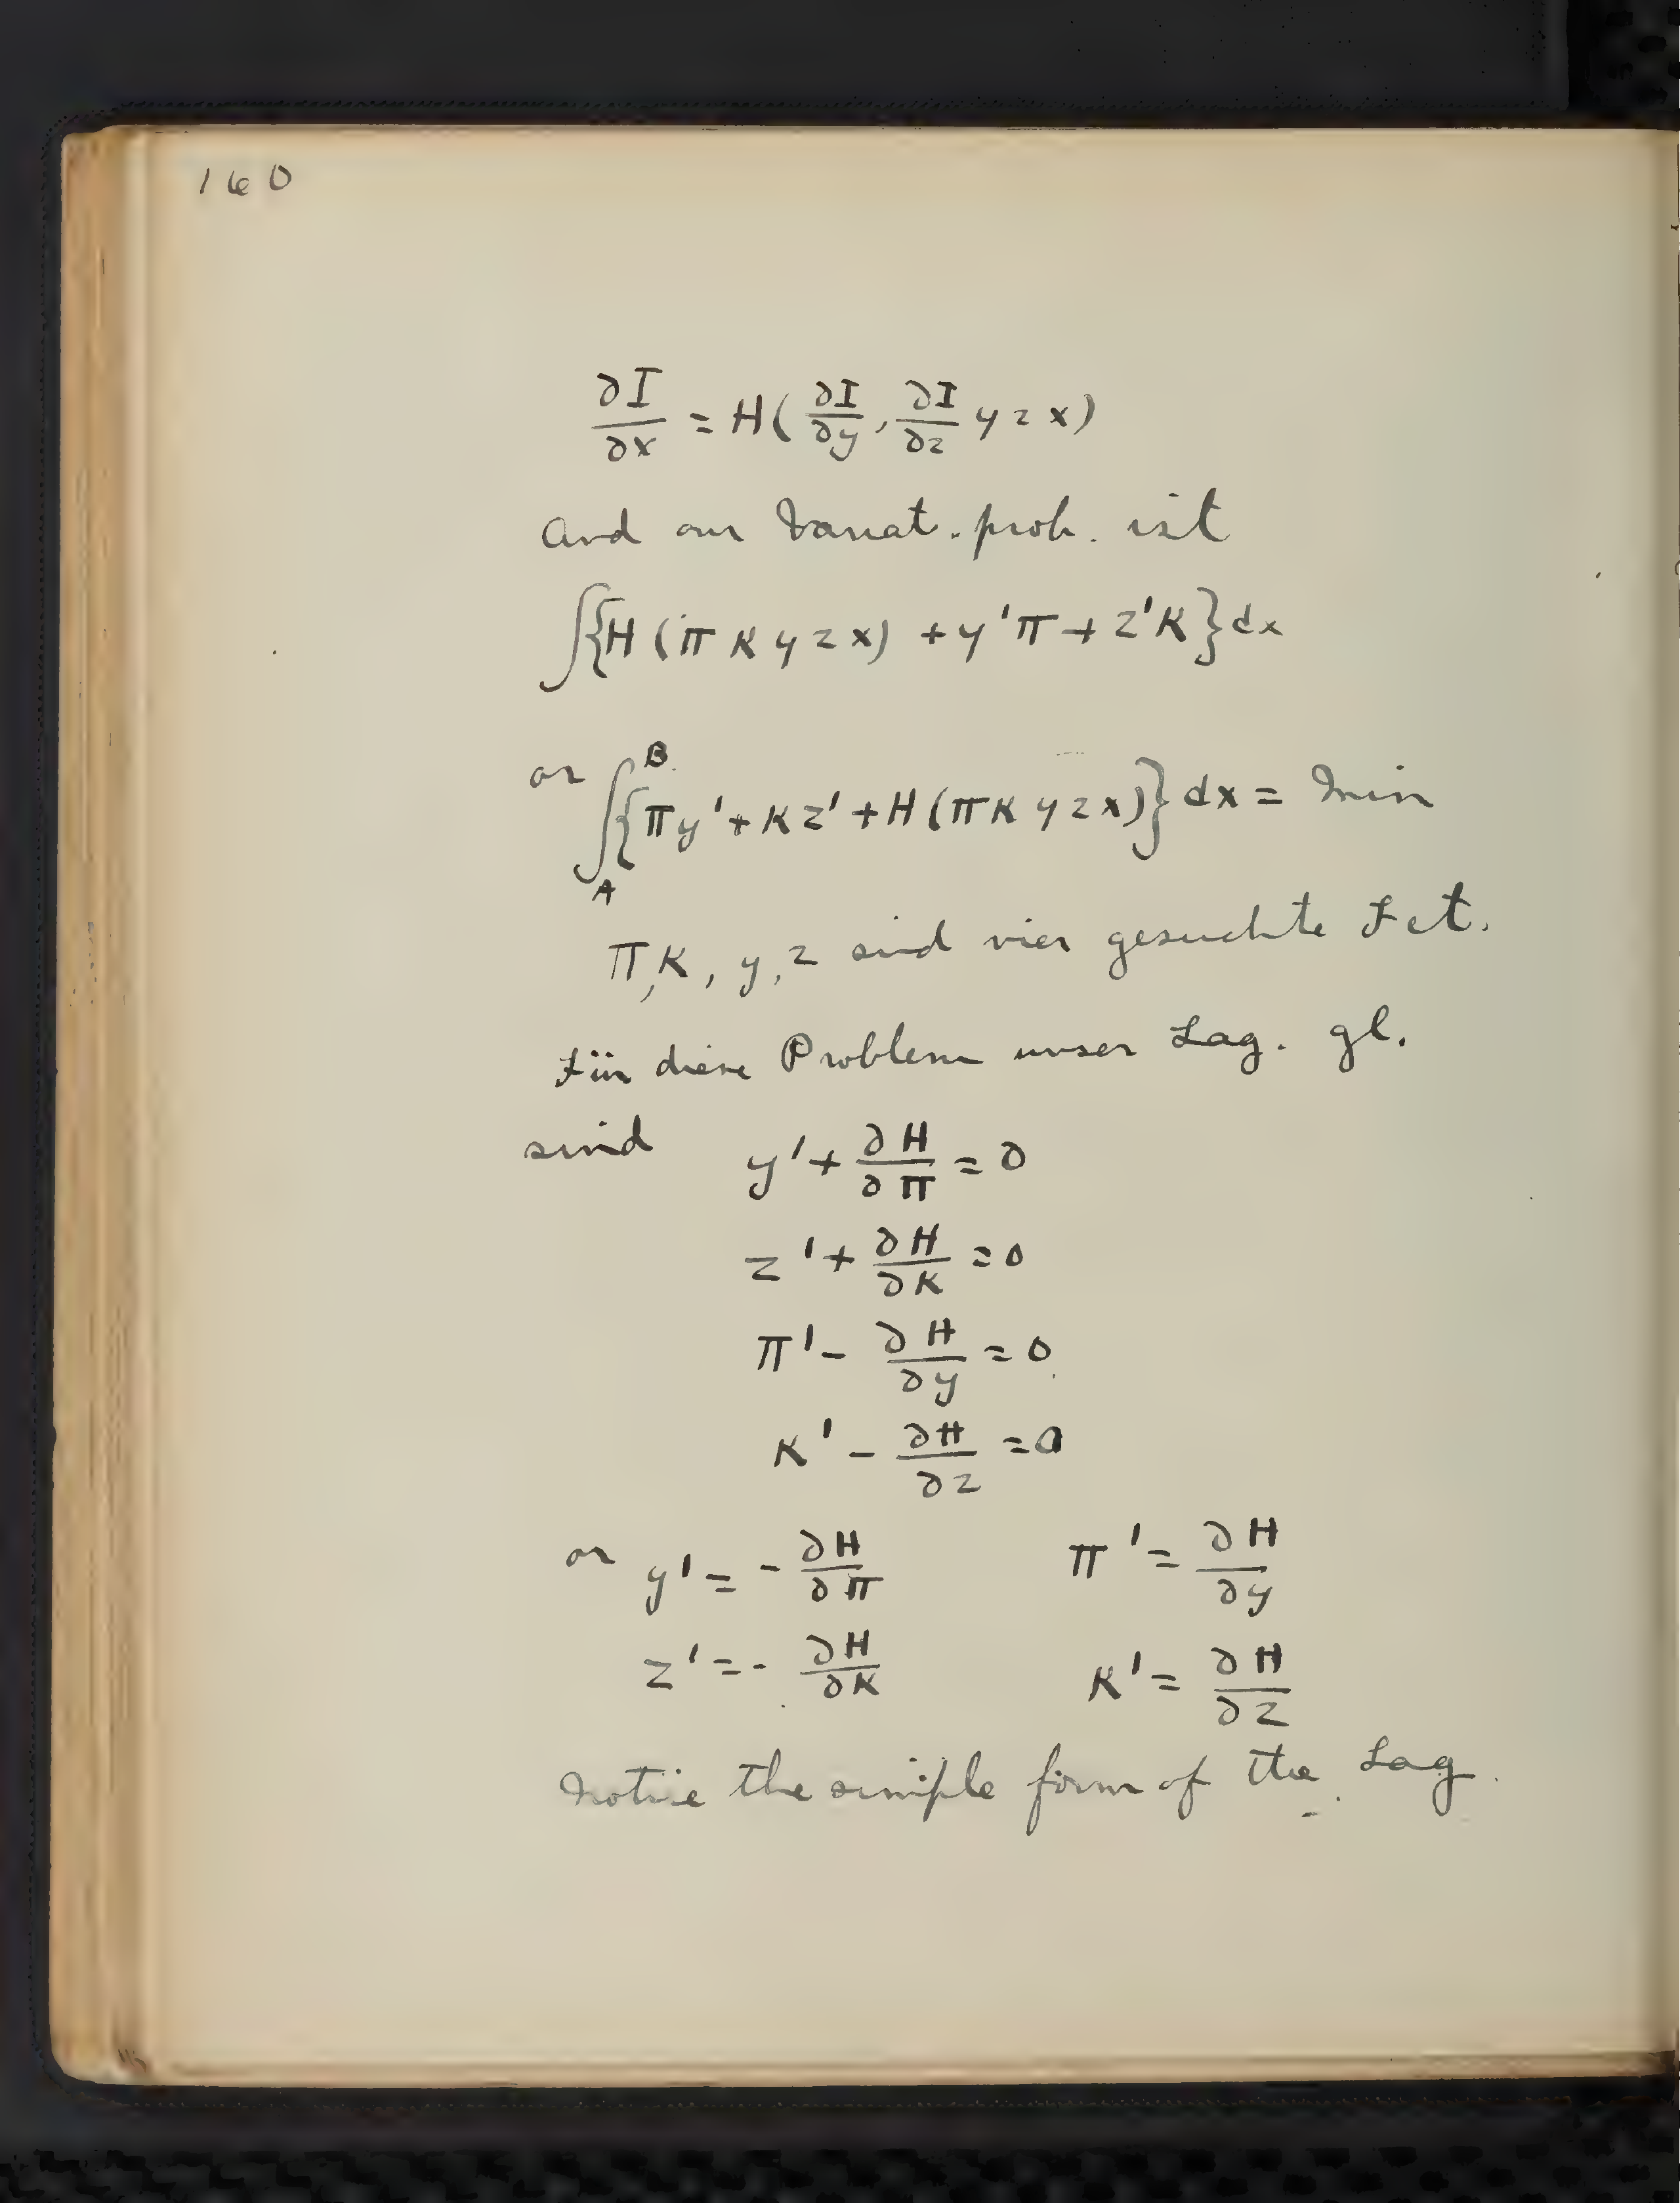 160
∂I/∂x = H( ∂I/∂y, ∂I/∂z y z x)
And our Variat. prob. ist
∫{H (π κ y z x) + y'π + z'κ} dx
or ∫_A^B {π y' + κ z' + H (π κ y z x)} dx = Min
π, κ, y, z sind vier gesuchte Fct.
Für diese Problem unser Lag. gl.
sind y' + ∂H/∂π = 0
z' + ∂H/∂κ = 0
π' - ∂H/∂y = 0
κ' - ∂H/∂z = 0
or y' = - ∂H/∂π π' = ∂H/∂y
z' = - ∂H/∂κ κ' = ∂H/∂z
Notice the simple form of the Lag.